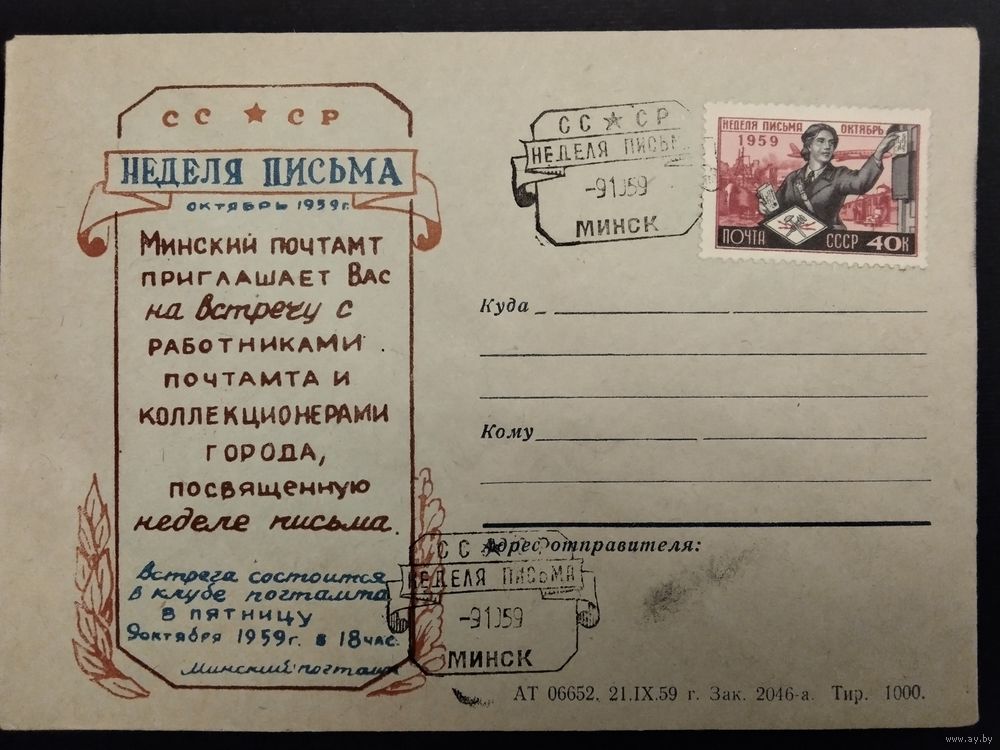 СС ★ СР
НЕДЕЛЯ ПИСЬМА
ОКТЯБРЬ 1959 г.
Минский почтамт
приглашает Вас
на встречу с
работниками
почтамта и
коллекционерами
города,
посвященную
неделе письма.
Встреча состоится
в клубе почтамта
в пятницу
9 октября 1959 г. в 18 час.
Минский почтамт
СС ★ СР
НЕДЕЛЯ ПИСЬМ
-91059
МИНСК
НЕДЕЛЯ ПИСЬМА ОКТЯБРЬ
1959
ПОЧТА СССР 40К
Куда
Кому
Адрес отправителя:
СС ★ СР
НЕДЕЛЯ ПИСЬМА
-91059
МИНСК
АТ 06652. 21.IX.59 г. Зак. 2046-а. Тир. 1000.
www.ay.by